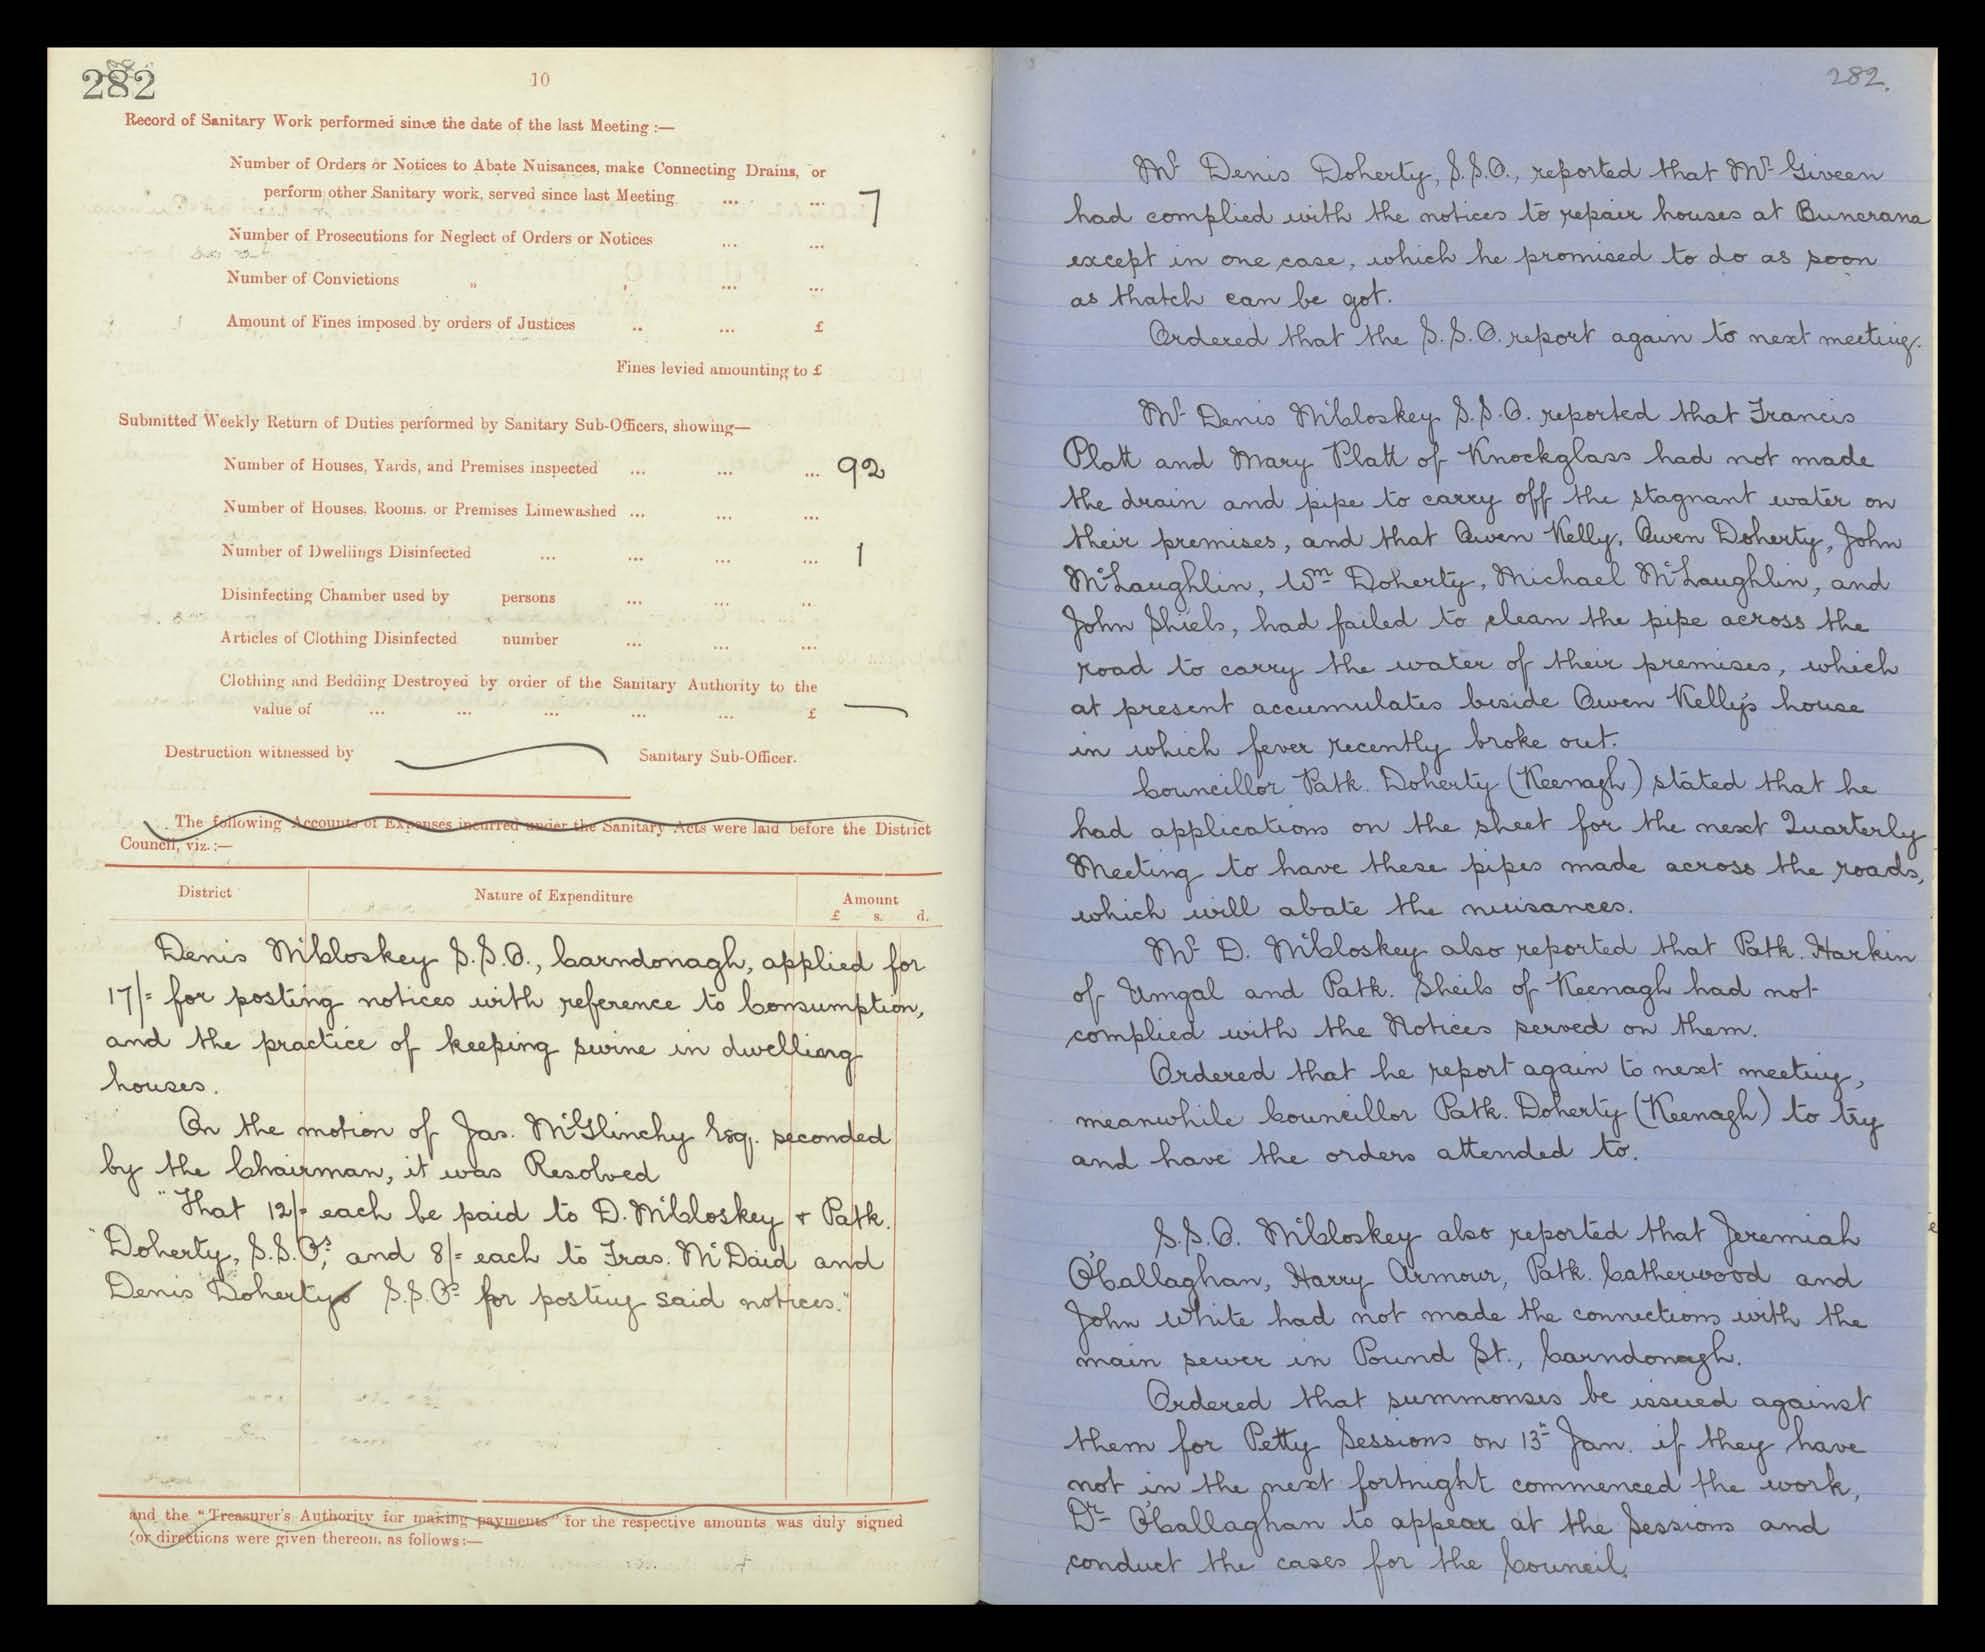 282
10
Record of Sanitary Work performed since the date of the last Meeting :—
Number of Orders or Notices to Abate Nuisances, make Connecting Drains, or
perform other Sanitary work, served since last Meeting ... ... 7
Number of Prosecutions for Neglect of Orders or Notices ... ...
Number of Convictions „ , ... ...
Amount of Fines imposed by orders of Justices .. ... £
Fines levied amounting to £
Submitted Weekly Return of Duties performed by Sanitary Sub-Officers, showing—
Number of Houses, Yards, and Premises inspected ... ... ... 92
Number of Houses, Rooms, or Premises Limewashed ... ... ...
Number of Dwellings Disinfected ... ... ... ... 1
Disinfecting Chamber used by persons ... ... ..
Articles of Clothing Disinfected number ... ... ...
Clothing and Bedding Destroyed by order of the Sanitary Authority to the
value of ... ... ... ... ... £ —
Destruction witnessed by — Sanitary Sub-Officer.
The following Accounts of Expenses incurred under the Sanitary Acts were laid before the District
Council, viz. :—
District Nature of Expenditure Amount
£ s. d.
Denis McCloskey S.S.O., Carndonagh, applied for
17/= for posting notices with reference to Consumption,
and the practice of keeping swine in dwelling
houses.
On the motion of Jas. McGlinchy Esq. seconded
by the Chairman, it was Resolved
"That 12/= each be paid to D. McCloskey & Patk.
"Doherty, S.S.Os, and 8/= each to Fras. McDaid and
Denis Doherty S.S.Os for posting said notices."
and the "Treasurer's Authority for making payments" for the respective amounts was duly signed
(or directions were given thereon, as follows :—
282.
Mr Denis Doherty, S.S.O., reported that Mr Giveen
had complied with the notices to repair houses at Buncrana
except in one case, which he promised to do as soon
as thatch can be got.
Ordered that the S.S.O. report again to next meeting.
Mr Denis McCloskey S.S.O. reported that Francis
Platt and Mary Platt of Knockglass had not made
the drain and pipe to carry off the stagnant water on
their premises, and that Owen Kelly, Owen Doherty, John
McLaughlin, Wm Doherty, Michael McLaughlin, and
John Shiels, had failed to clean the pipe across the
road to carry the water of their premises, which
at present accumulates beside Owen Kelly's house
in which fever recently broke out.
Councillor Patk. Doherty (Keenagh) stated that he
had applications on the sheet for the next Quarterly
Meeting to have these pipes made across the roads,
which will abate the nuisances.
Mr D. McCloskey also reported that Patk. Harkin
of Umgal and Patk. Sheils of Keenagh had not
complied with the Notices served on them.
Ordered that he report again to next meeting,
meanwhile Councillor Patk. Doherty (Keenagh) to try
and have the orders attended to.
S.S.O. McCloskey also reported that Jeremiah
O'Callaghan, Harry Armour, Patk. Catherwood and
John White had not made the connections with the
main sewer in Pound St., Carndonagh.
Ordered that summonses be issued against
them for Petty Sessions on 13" Jan. if they have
not in the next fortnight commenced the work,
Dr O'Callaghan to appear at the Sessions and
conduct the cases for the Council.